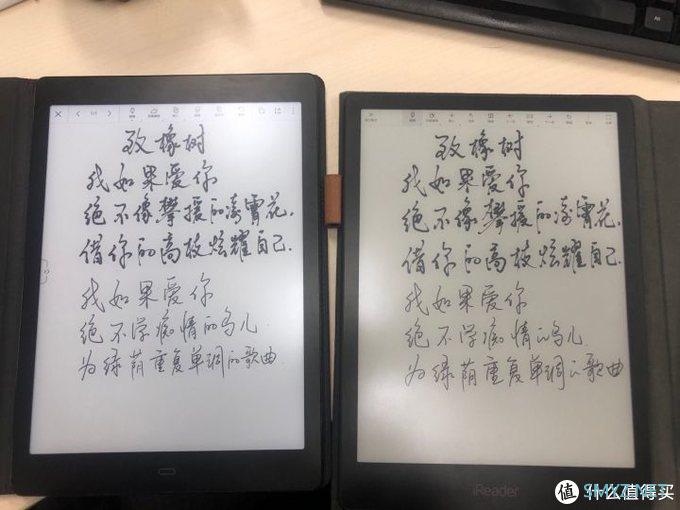 致橡树
我如果爱你
绝不像攀援的凌霄花.
借你的高枝炫耀自己.
我如果爱你
绝不学痴情的鸟儿
为绿荫重复单调的歌曲
致橡树
我如果爱你
绝不像攀援的凌霄花.
借你的高枝炫耀自己.
我如果爱你
绝不学痴情的鸟儿
为绿荫重复单调的歌曲
iReader
值 什么值得买